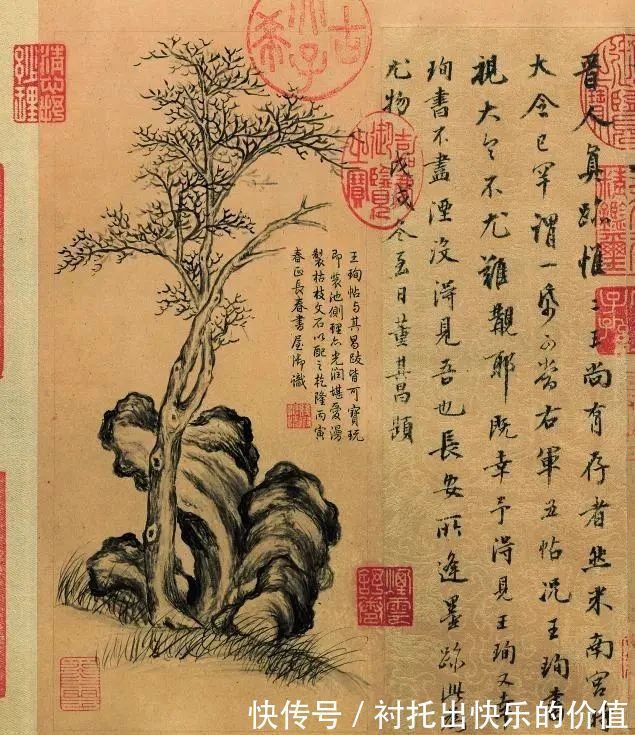 晉人真跡惟二王尚有存者然米南宮時
大令已罕謂一帋可當右軍五帖況王珣書
視大令不尤難覯耶既幸予得見王珣又幸
珣書不盡湮沒得見吾也長安所逢墨跡此為
尤物 戊戌冬至日董其昌題
王珣帖與其昌跋皆可寶玩
即裝池側理亦光潤堪愛漫
製枯枝文石以配之乾隆丙寅
春正長春書屋御識
古稀天子
嘉慶御覽之寶
快传号 / 衬托出快乐的价值